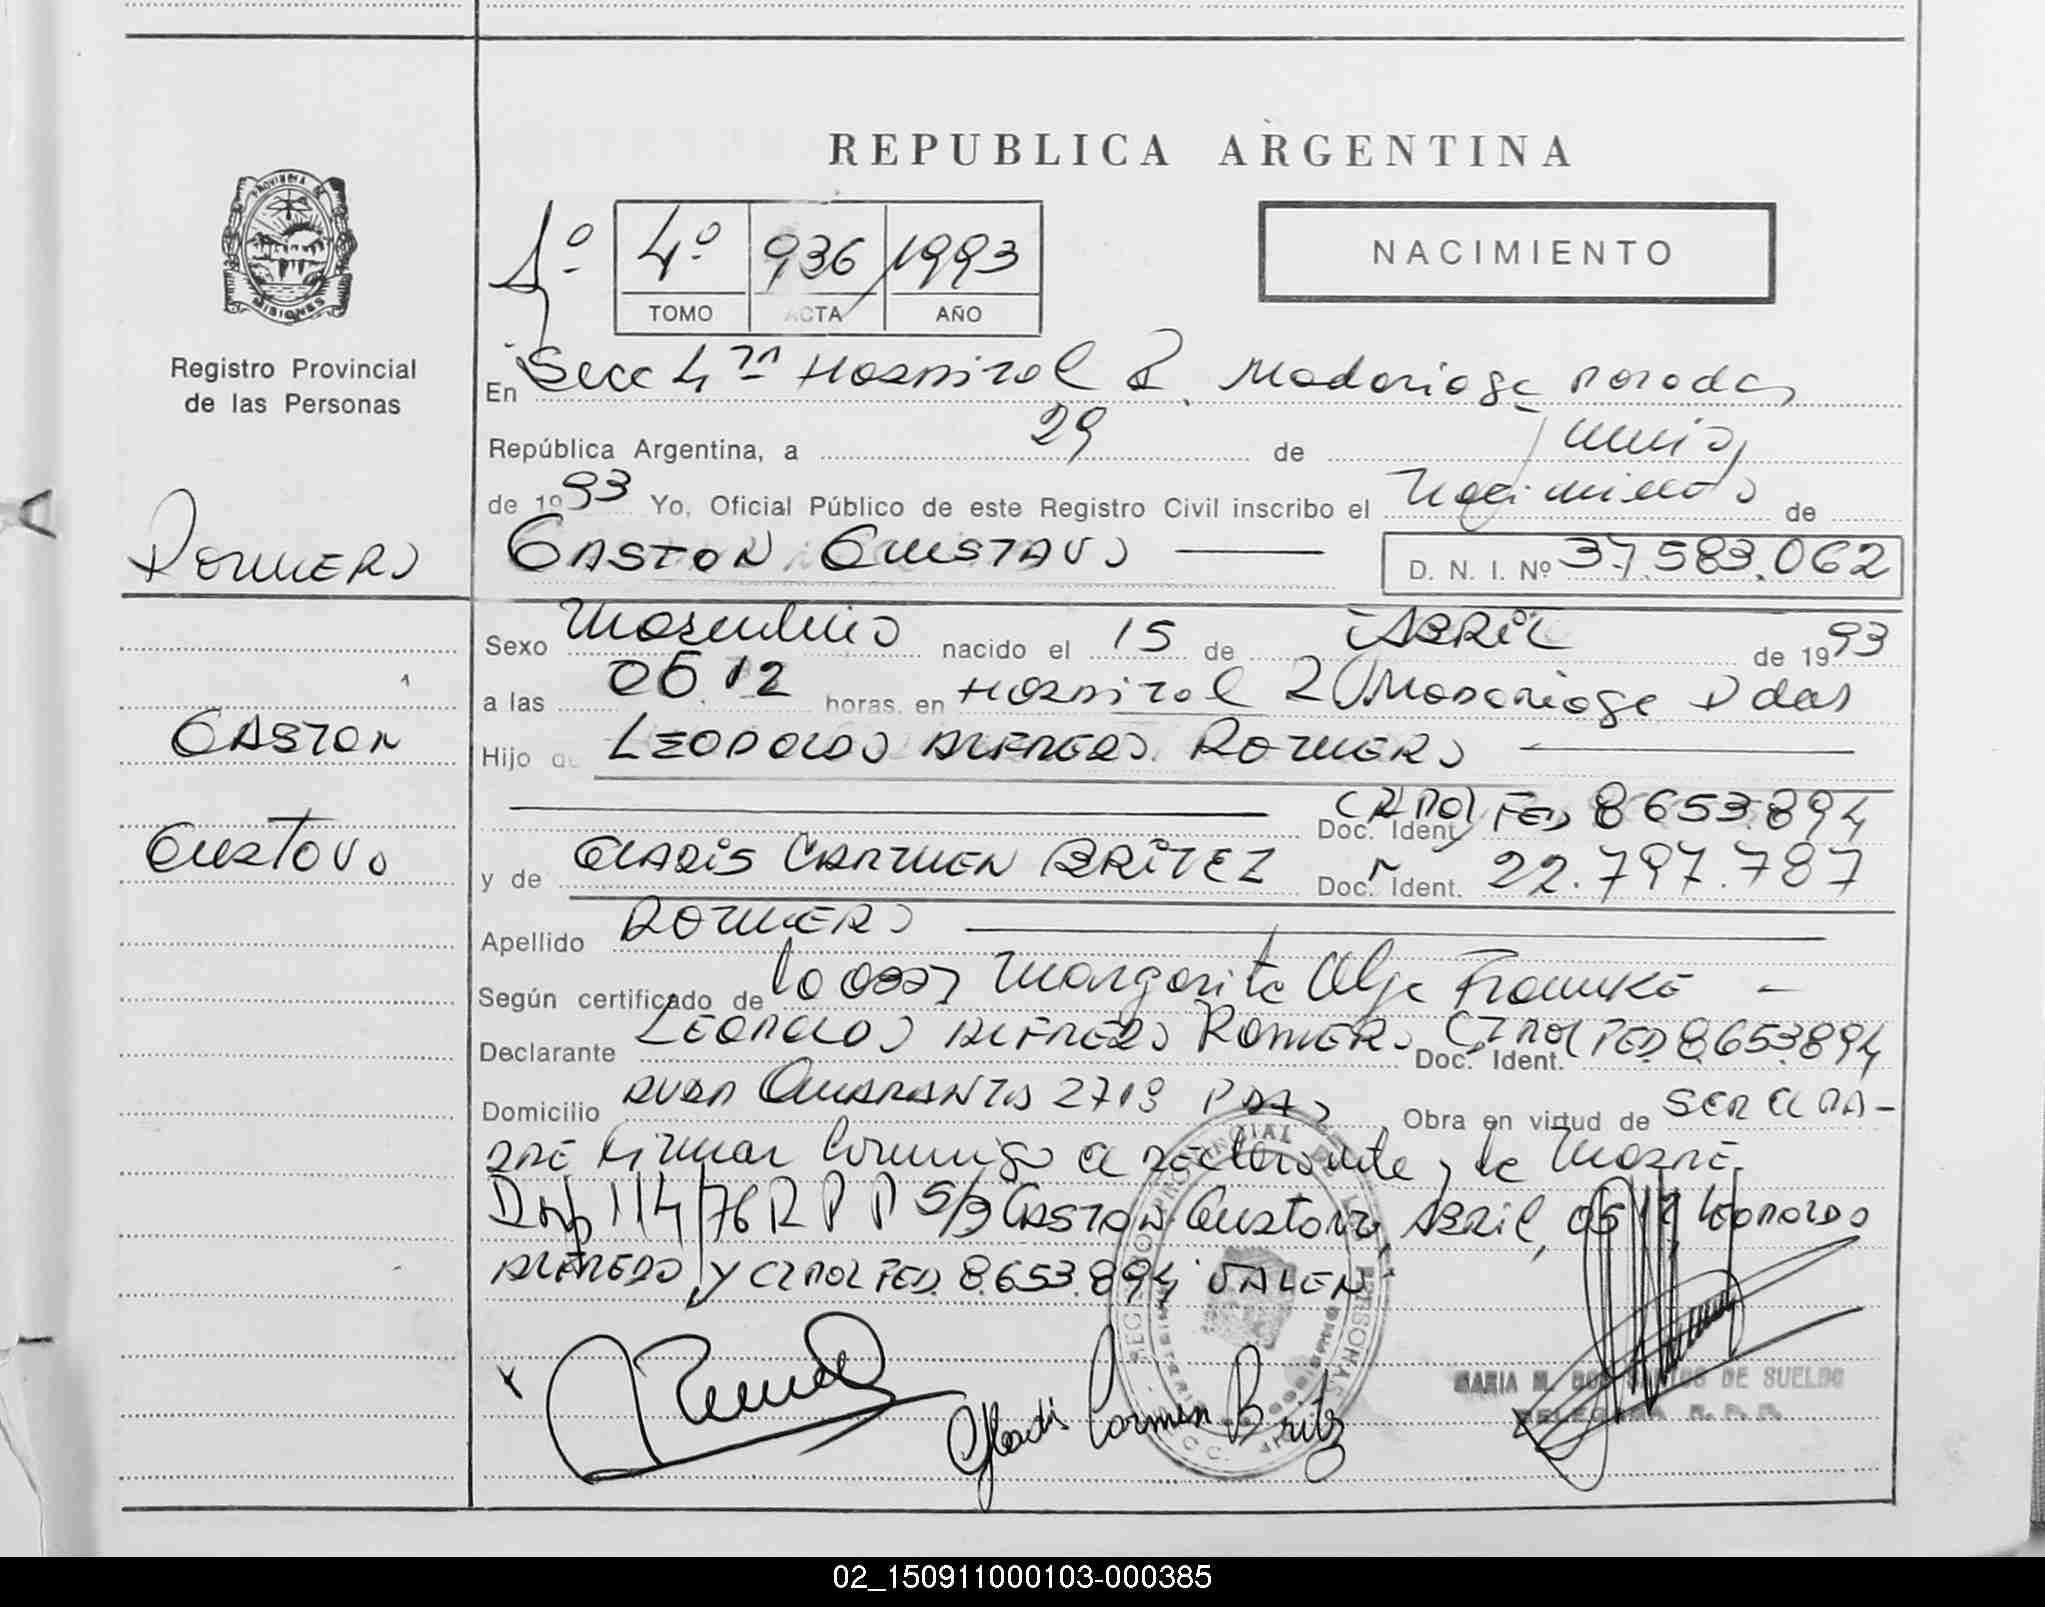 REPUBLICA ARGENTINA
PROVINCIA DE
MISIONES
Registro Provincial
de las Personas
4º 936 1993
TOMO ACTA AÑO
NACIMIENTO
En Secc 4ta Hospital R. Madariaga Posadas
República Argentina, a 29 de Junio
de 1993 Yo, Oficial Público de este Registro Civil inscribo el Nacimiento de
ROMERO
GASTON GUSTAVO D. N. I. Nº 37.583.062
Sexo Masculino nacido el 15 de ABRIL de 1993
a las 06.12 horas. en Hospital R Madariaga Pdas
GASTON
Hijo de LEOPOLDO ALFREDO ROMERO
Doc. Ident. CI POL FED 8653.894
GUSTAVO
y de GLADIS CARMEN BRITEZ Doc. Ident. 22.797.787
Apellido ROMERO
Según certificado de la Margarita Olga
Declarante LEOPOLDO ALFREDO ROMERO Doc. Ident. CI POL FED. 8.653.894
Domicilio 2719 PDAS Obra en virtud de SER EL PA-
DRE Firman Conmigo el declarante y la MADRE.
114/76 R P P S/B GASTON Gustavo, ABRIL, 06 12, LEOPOLDO
ALFREDO y CI POL FED. 8.653.894 VALEN
Gladis Carmen Britez
MARIA M. DOS SANTOS DE SUELDO
DELEGADA R. P. P.
02_150911000103-000385